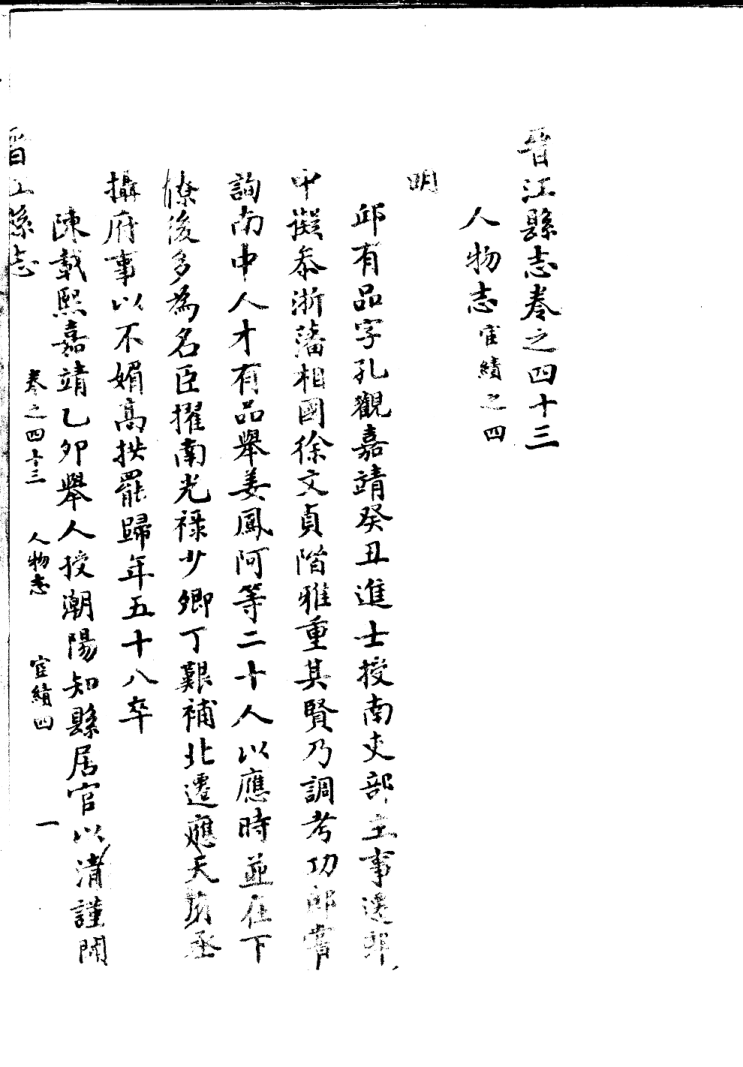 晉江縣志卷之四十三
人物志 宦績之四
明
邱有品字孔觀嘉靖癸丑進士授南吏部主事遷郎
中擬叅浙藩相國徐文貞階雅重其賢乃調考功郎嘗
詢南中人才有品舉姜鳳阿等二十人以應時並在下
僚後多為名臣擢南光祿少卿丁艱補北遷應天府丞
攝府事以不媚高拱罷歸年五十八卒
陳載熙嘉靖乙卯舉人授潮陽知縣居官以清謹聞
晉江縣志 卷之四十三 人物志 宦績四 一